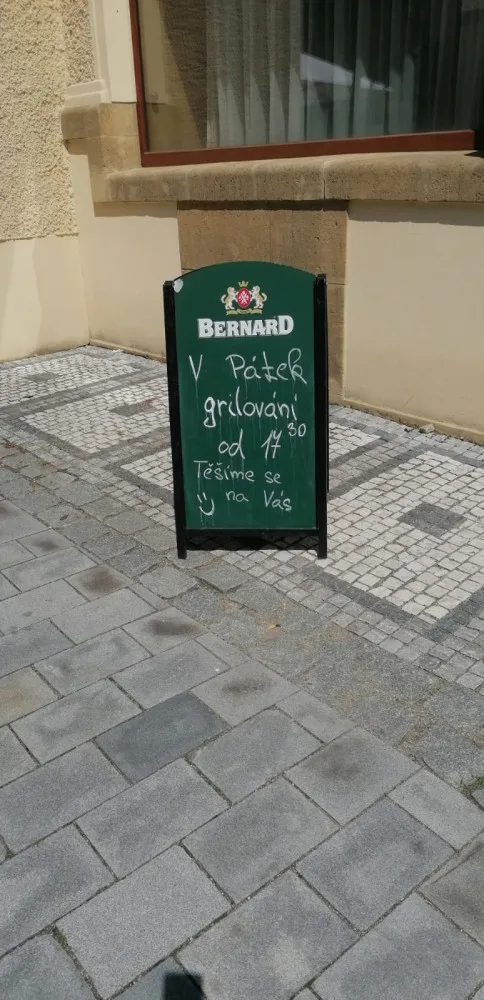 BERNARD
V Pátek
grilování
od 17 30
Těšíme se
na Vás